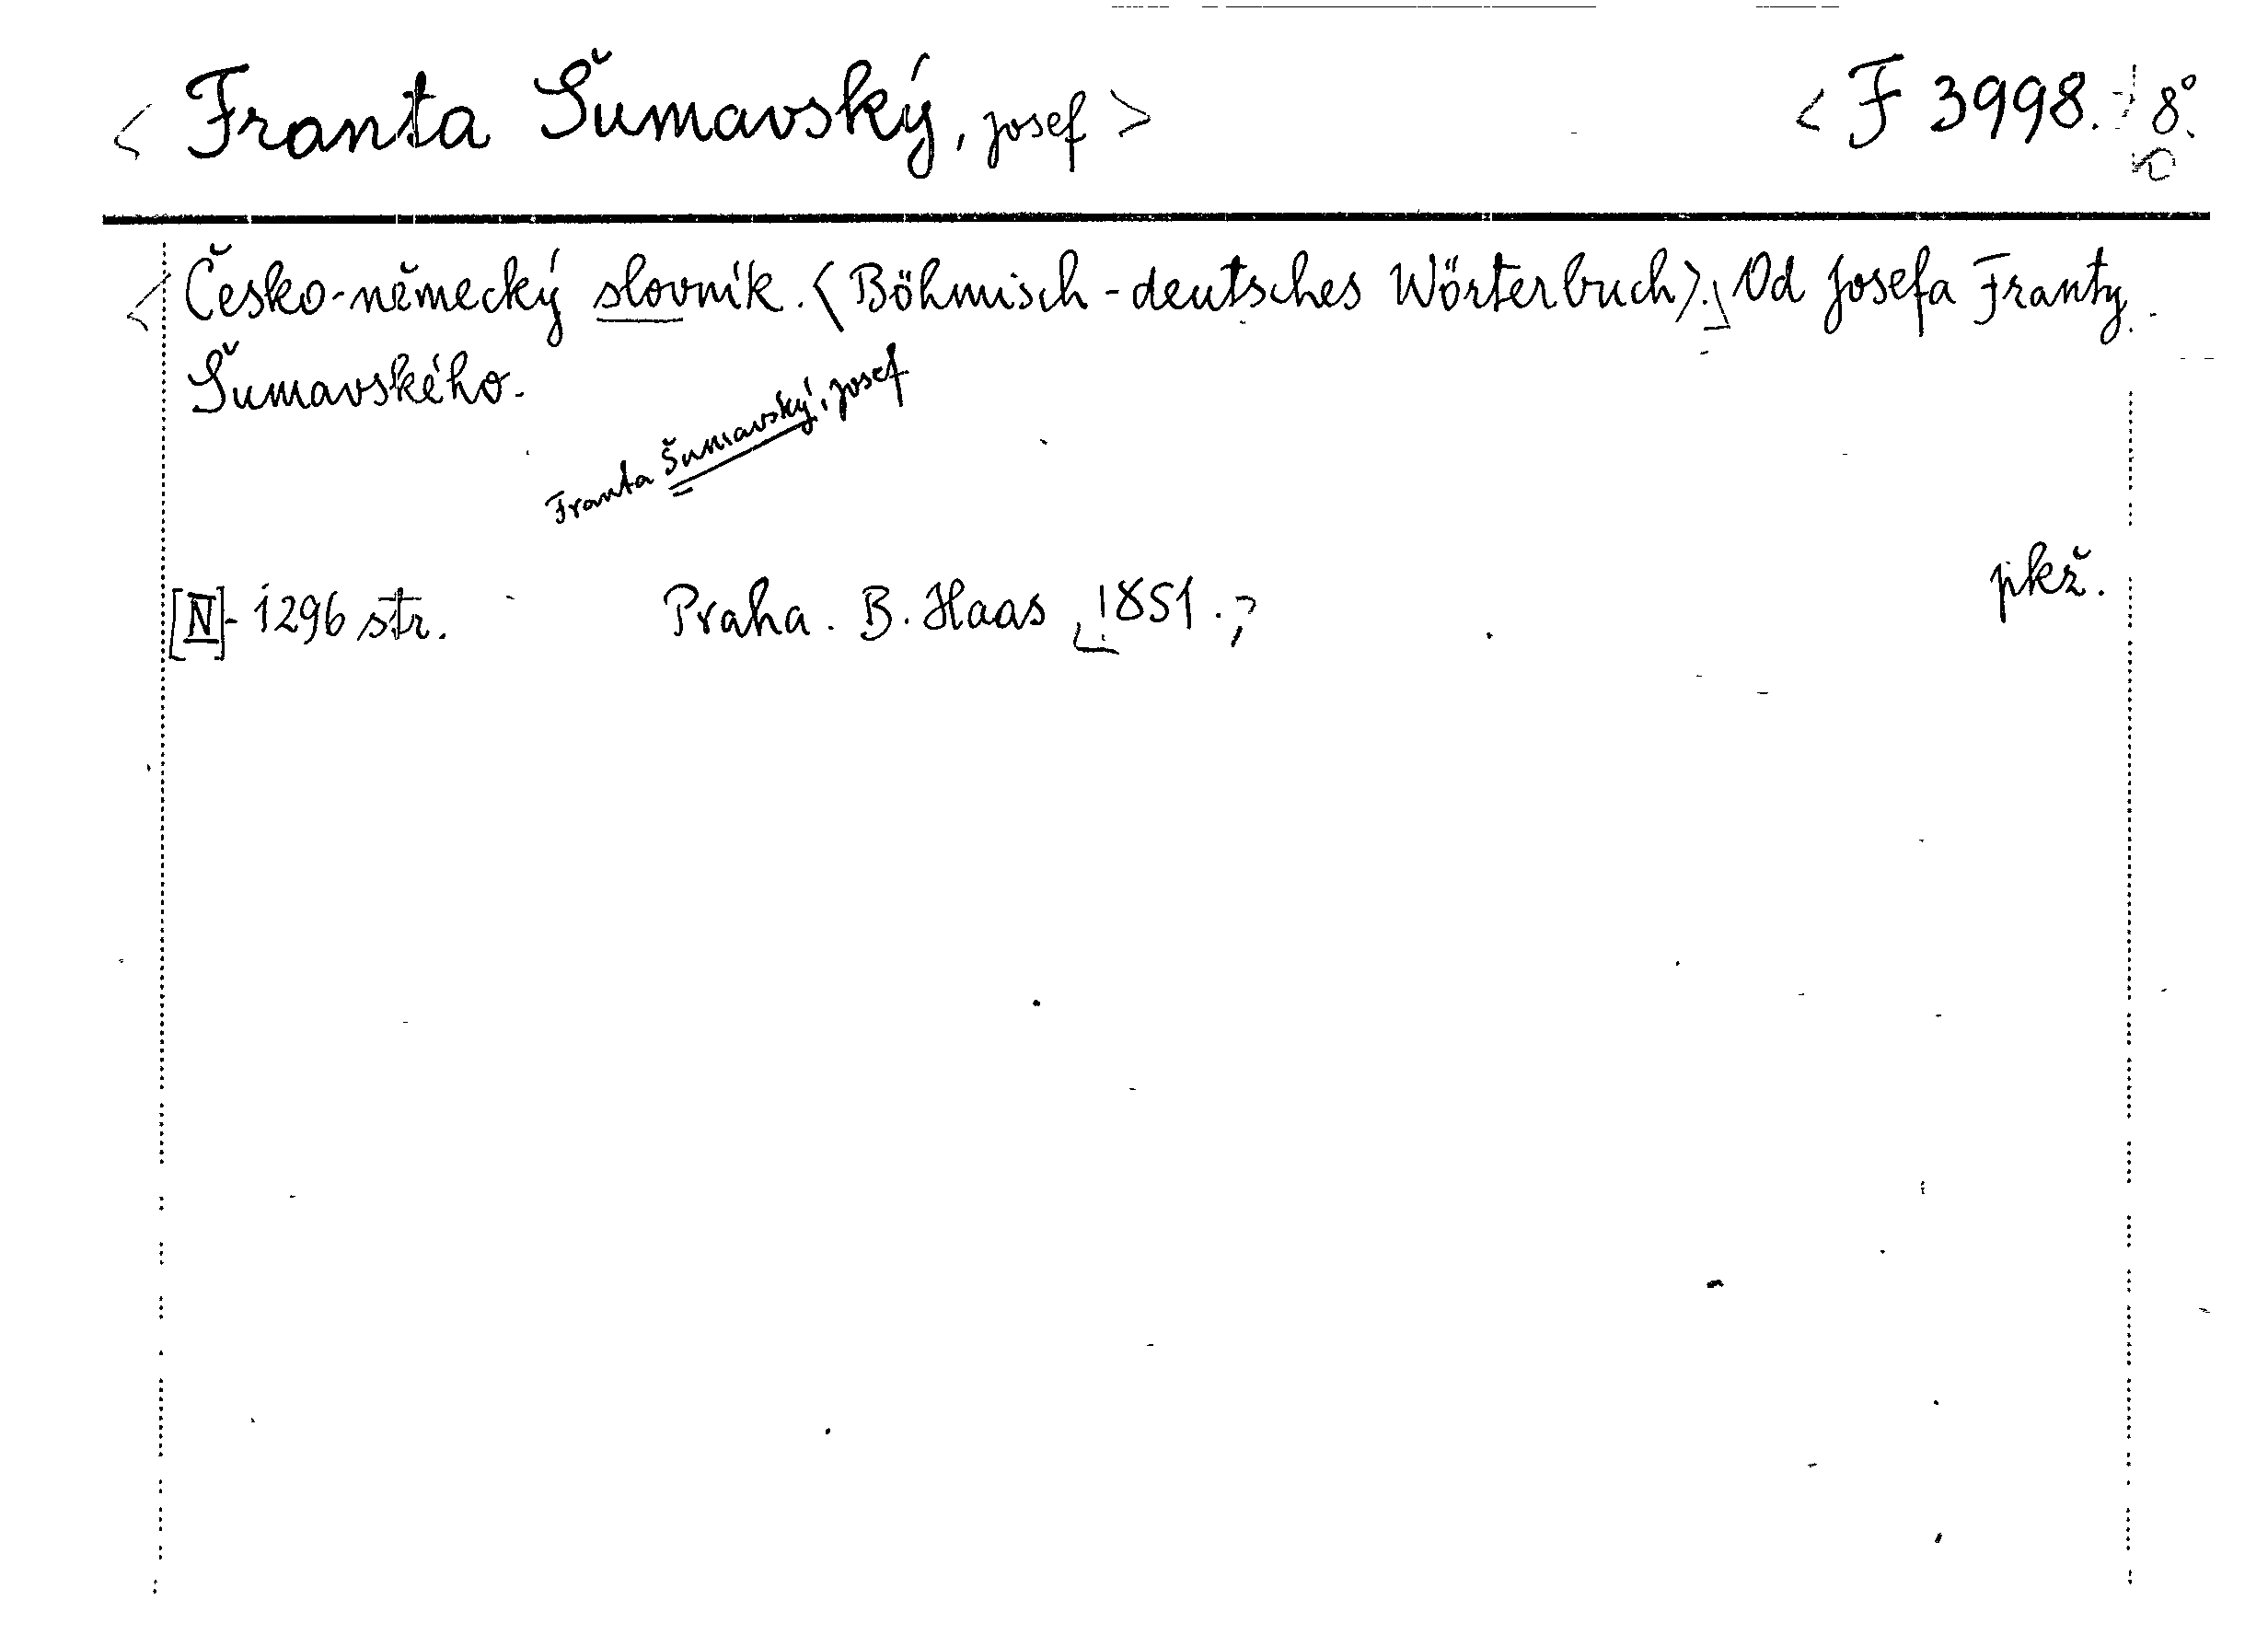 < Franta Šumavský, Josef > < F 3998. 8°
< Česko-německý slovník. (Böhmisch-deutsches Wörterbuch). Od Josefa Franty
Šumavského.
Franta Šumavský, Josef
[IV]- 1296 str. Praha. B. Haas 1851. pkž.